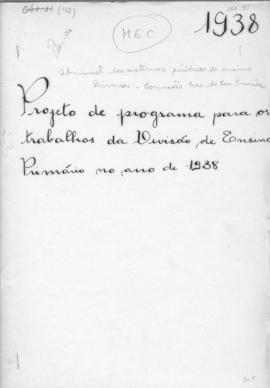 (42)
MEC
1938
Administ. dos sistemas públicos de ensino
Projeto de programa para os
trabalhos da Divisão de Ensino
Primário no ano de 1938